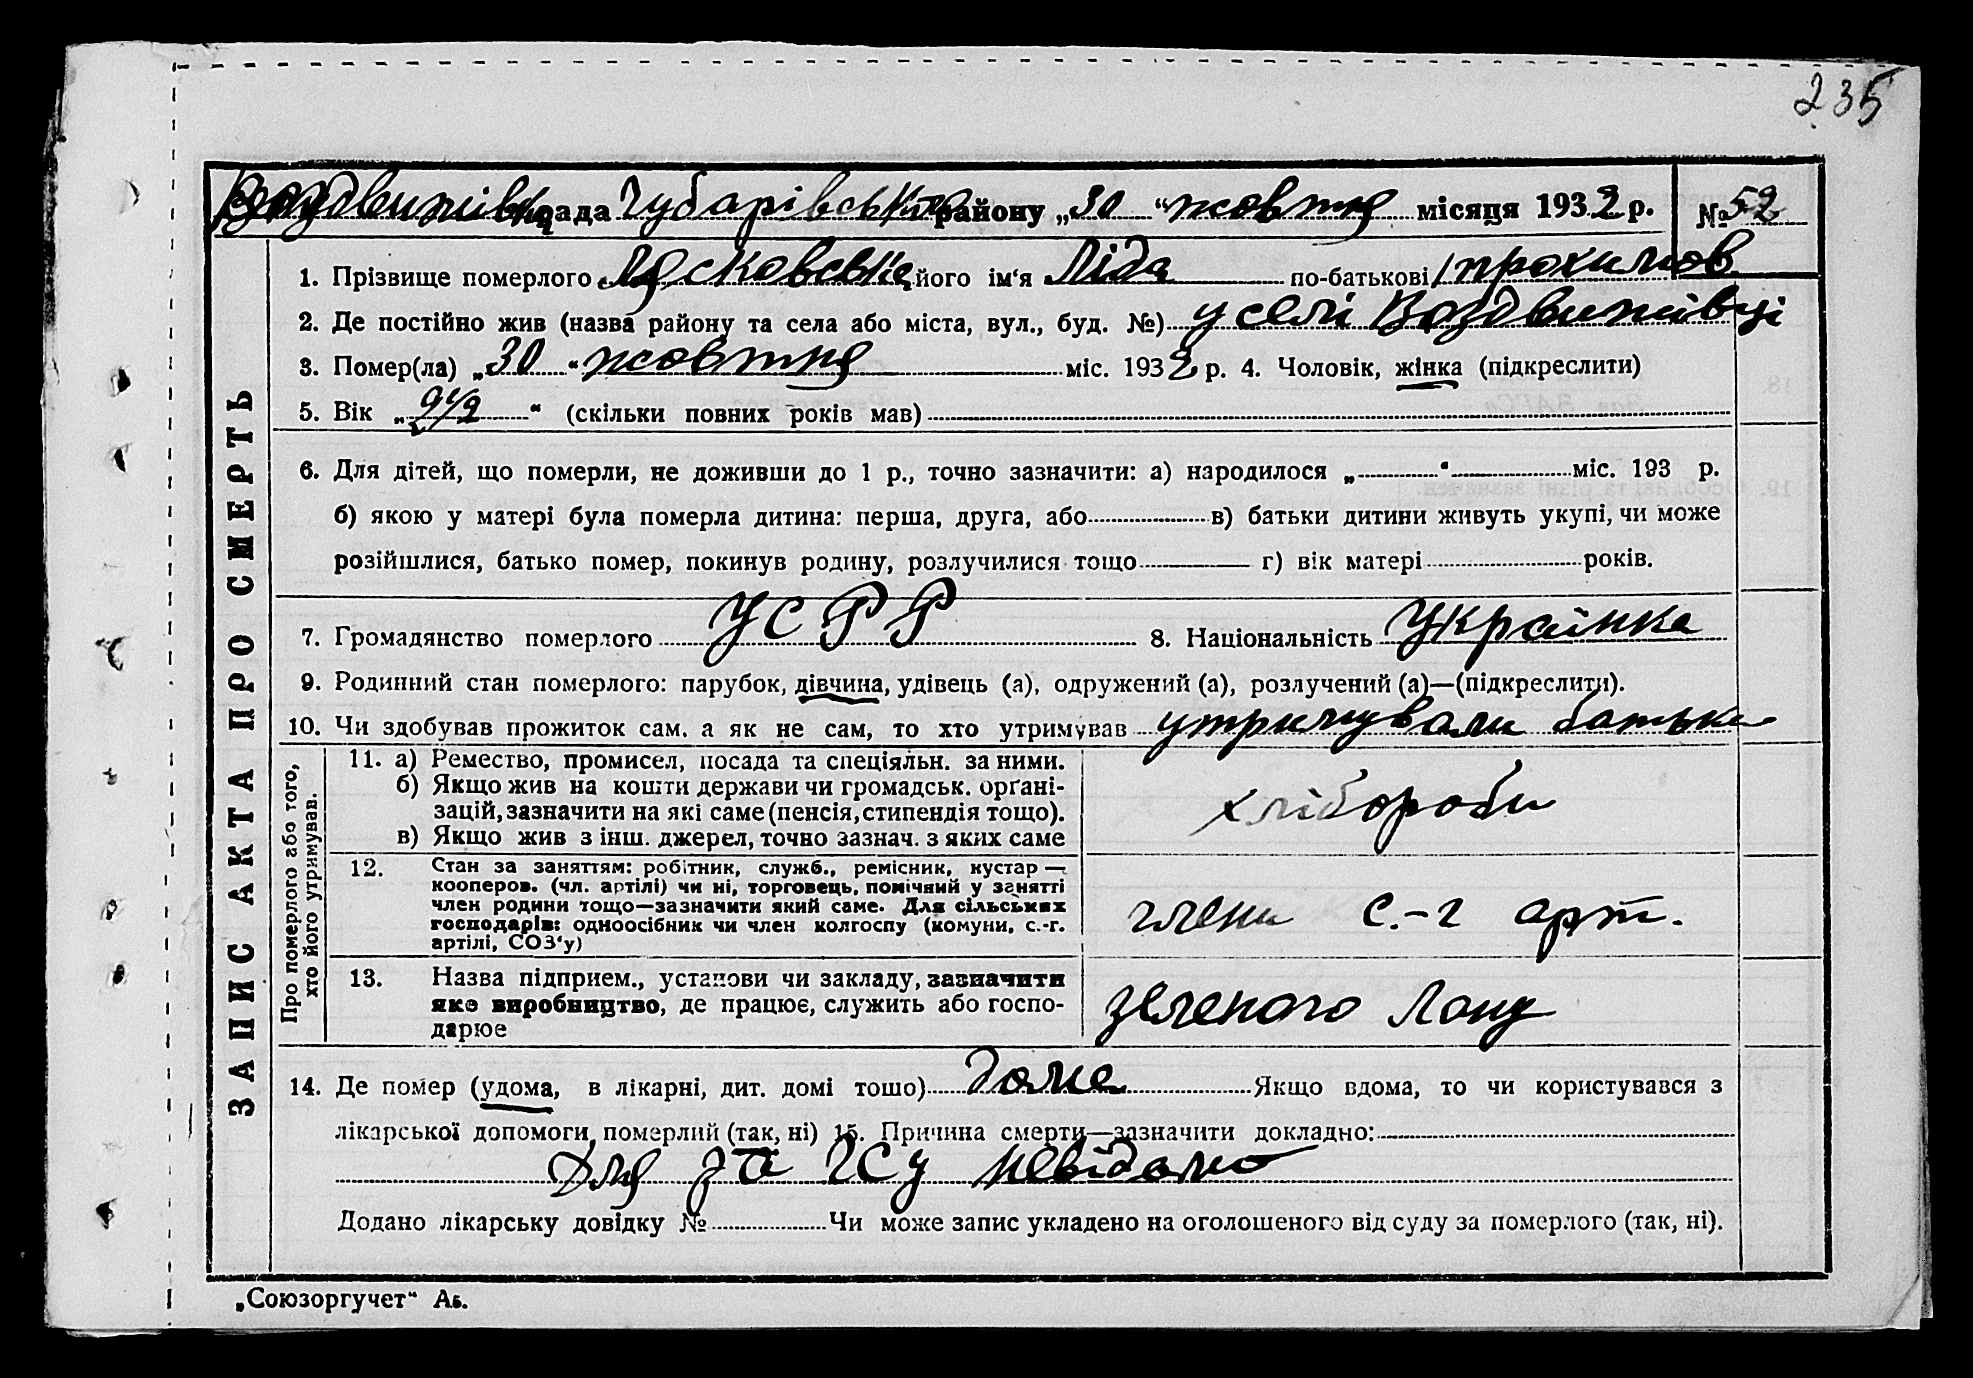 235
Воздвижівка рада Чубарівського району „30“ жовтня місяця 1932 р. № 52
ЗАПИС АКТА ПРО СМЕРТЬ
1. Прізвище померлого Лясковська його ім‘я Ліда по-батькові
2. Де постійно жив (назва району та села або міста, вул., буд. №) у селі Воздвижівці
3. Помер(ла) „30“ жовтня міс. 1932 р. 4. Чоловік, жінка (підкреслити)
5. Вік „ “ (скільки повних років мав)
6. Для дітей, що померли, не доживши до 1 р., точно зазначити: а) народилося „ “ міс. 193 р.
б) якою у матері була померла дитина: перша, друга, або в) батьки дитини живуть укупі, чи може
розійшлися, батько помер, покинув родину, розлучилися тощо г) вік матері років.
7. Громадянство померлого УСРР 8. Національність Українка
9. Родинний стан померлого: парубок, дівчина, удівець (а), одружений (а), розлучений (а)—(підкреслити).
10. Чи здобував прожиток сам, а як не сам, то хто утримував утримували батьки
Про померлого або того,
хто його утримував.
11. а) Ремество, промисел, посада та спеціяльн. за ними.
б) Якщо жив на кошти держави чи громадськ. орґані-
зацій, зазначити на які саме (пенсія, стипендія тощо).
в) Якщо жив з інш. джерел, точно зазнач. з яких саме
хлібороби
12. Стан за заняттям: робітник, служб., ремісник, кустар —
кооперов. (чл. артілі) чи ні, торговець, помічний у занятті
член родини тощо—зазначити який саме. Для сільських
господарів: одноосібник чи член колгоспу (комуни, с.-г.
артілі, СОЗ‘у)
члени с.-г арт.
13. Назва підприєм., установи чи закладу, зазначити
яке виробництво, де працює, служить або госпо-
дарює
зеленого Лану
14. Де помер (удома, в лікарні, дит. домі тошо) дома Якщо вдома, то чи користувався з
лікарської допомоги, померлий (так, ні) 15. Причина смерти—зазначити докладно:
Для невідомо
Додано лікарську довідку № Чи може запис укладено на оголошеного від суду за померлого (так, ні).
„Союзоргучет“ Аб.